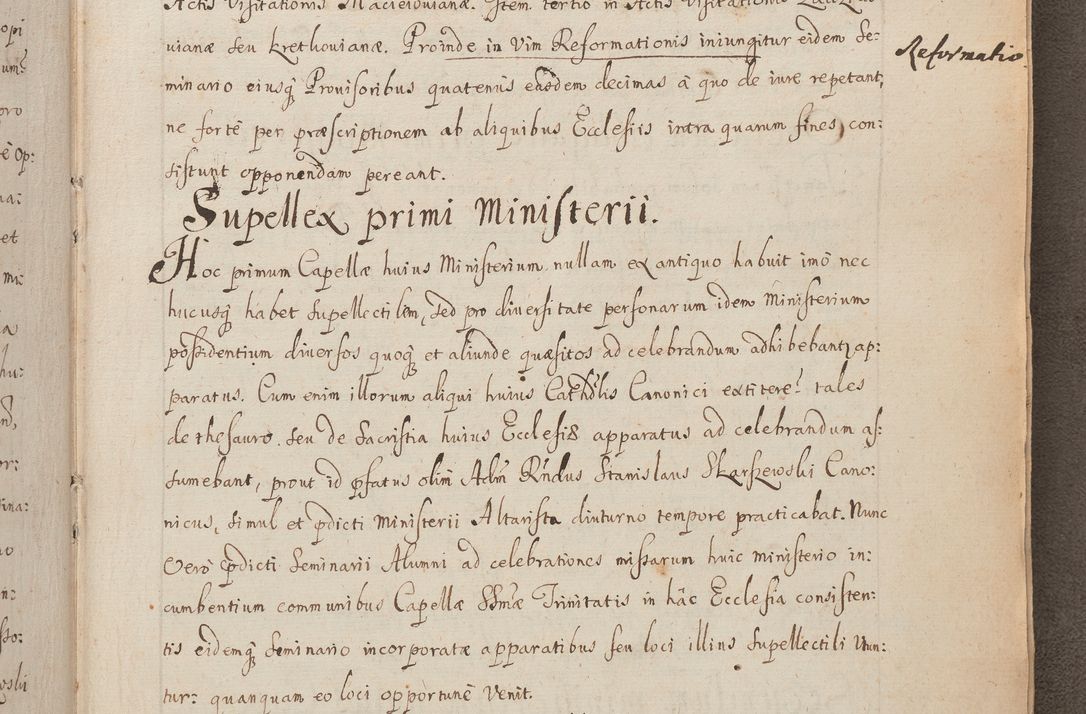 Actis Visitationis Macieiovianæ. Item tertio in Actis Visitationis
vianæ seu Krethovianæ. Proinde in vim Reformationis iniungitur eidem Se:
Reformatio
minario eiusq́ Provisoribus quatenus easdem decimas á quo de iure repetant,
ne fortè per præscriptionem ab aliquibus Ecclesiis intra quarum fines con:
sistunt opponendam pereant.
Supellex primi Ministerii.
Hoc primum Capellæ huius Ministerium nullam ex antiquo habuit imó nec
hucusq́ habet supellectilem, sed pro diversitate personarum idem Ministerium
possidentium diversos quoq́ et aliunde quæsitos ad celebrandum adhibebant ap:
paratus. Cum enim illorum aliqui huius Cathlis Canonici extitere tales
de thesauro seu de Sacristia huius Ecclesiæ apparatus ad celebrandum as:
sumebant, prout id pfatus olim Adm Rndus Stanislaus Skarszewski Cano:
nicus, simul et pdicti Ministerii Altarista diuturno tempore practicabat. Nunc
Vero pdicti Seminarii Alumni ad celebrationes missarum huic ministerio in:
cumbentium communibus Capellæ SSmæ Trinitatis in hác Ecclesia consisten:
tis eidemq́ Seminario incorporatæ apparatibus seu loci illius supellectili utun:
tur: quanquam eo loci opportunè venit.